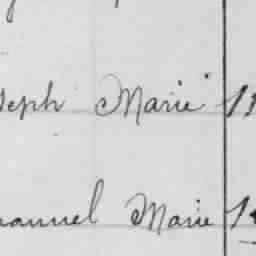 seph Marie
hanuel Marie